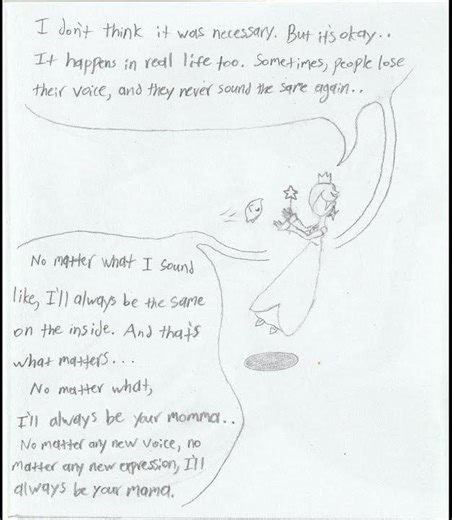 I don't think it was necessary. But it's okay..
It happens in real life too. Sometimes, people lose
their voice, and they never sound the same again..
No matter what I sound
like, I'll always be the same
on the inside. And that's
what matters...
No matter what,
I'll always be your momma..
No matter any new voice, no
matter any new expression, I'll
always be your mama.